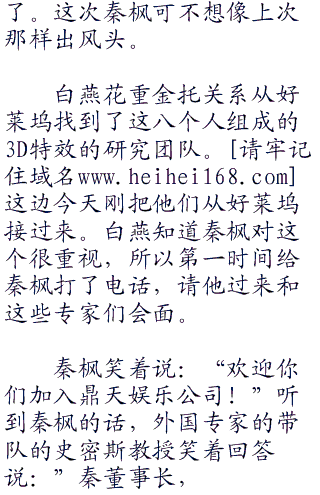 了。这次秦枫可不想像上次
那样出风头。
白燕花重金托关系从好
莱坞找到了这八个人组成的
3D特效的研究团队。[请牢记
住域名www.heihei168.com]
这边今天刚把他们从好莱坞
接过来。白燕知道秦枫对这
个很重视，所以第一时间给
秦枫打了电话，请他过来和
这些专家们会面。
秦枫笑着说：“欢迎你
们加入鼎天娱乐公司！”听
到秦枫的话，外国专家的带
队的史密斯教授笑着回答
说：”秦董事长，